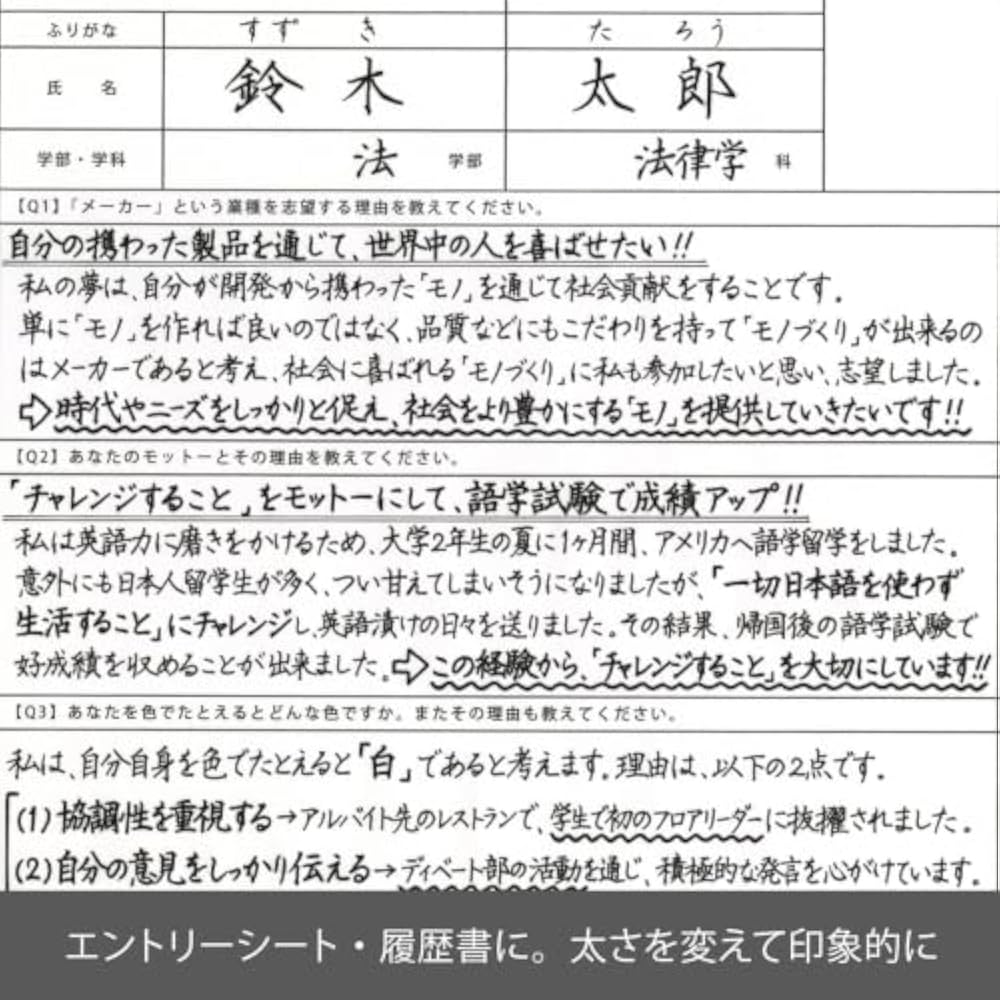 ふりがな すずき たろう
氏名 鈴木 太郎
学部・学科 法 学部 法律学 科
【Q1】「メーカー」という業種を志望する理由を教えてください。
自分の携わった製品を通じて、世界中の人を喜ばせたい!!
私の夢は、自分が開発から携わった「モノ」を通じて社会貢献をすることです。
単に「モノ」を作れば良いのではなく、品質などにもこだわりを持って「モノづくり」が出来るの
はメーカーであると考え、社会に喜ばれる「モノづくり」に私も参加したいと思い、志望しました。
⇨時代やニーズをしっかりと促え、社会をより豊かにする「モノ」を提供していきたいです!!
【Q2】あなたのモットーとその理由を教えてください。
「チャレンジすること」をモットーにして、語学試験で成績アップ!!
私は英語力に磨きをかけるため、大学2年生の夏に1ヶ月間、アメリカへ語学留学をしました。
意外にも日本人留学生が多く、つい甘えてしまいそうになりましたが、「一切日本語を使わず
生活すること」にチャレンジし、英語漬けの日々を送りました。その結果、帰国後の語学試験で
好成績を収めることが出来ました。⇨この経験から、「チャレンジすること」を大切にしています!!
【Q3】あなたを色でたとえるとどんな色ですか。またその理由も教えてください。
私は、自分自身を色でたとえると「白」であると考えます。理由は、以下の2点です。
(1)協調性を重視する→アルバイト先のレストランで、学生で初のフロアリーダーに抜擢されました。
(2)自分の意見をしっかり伝える→ディベート部の活動を通じ、積極的な発言を心がけています。
エントリーシート・履歴書に。太さを変えて印象的に